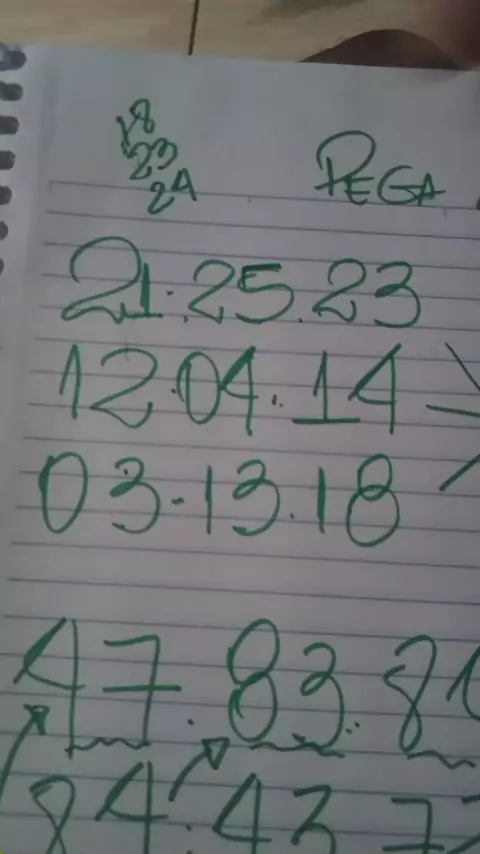 18
23
24
PEGA
21.25.23
12.04.14
03.13.18
47.83.8
84.43.7